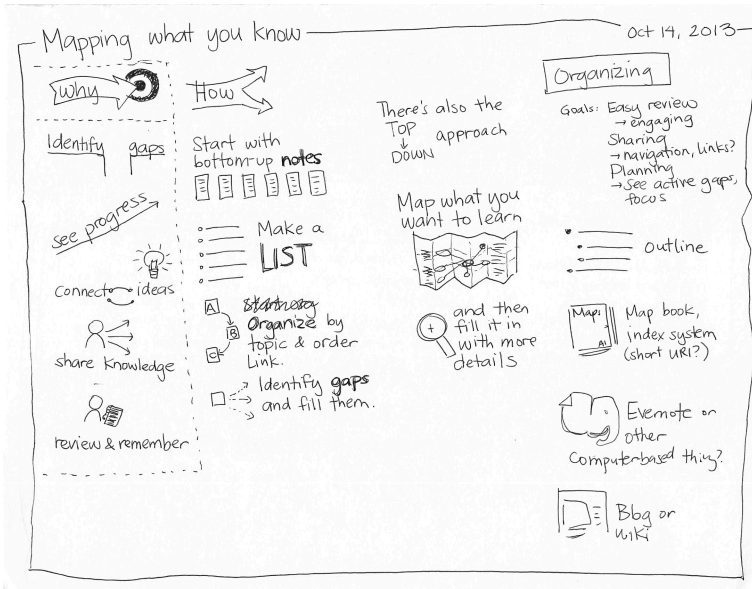 Mapping what you know
Oct 14, 2013
Why
Identify gaps
see progress
Connect ideas
share knowledge
review & remember
How
Start with
bottom-up notes
Make a
LIST
A
B
C
Organize by
topic & order
Link.
Identify gaps
and fill them.
There's also the
TOP
↓
DOWN
approach
Map what you
want to learn
and then
fill it in
with more
details
Organizing
Goals: Easy review
→ engaging
Sharing
→ navigation, links?
Planning
→ See active gaps,
focus
outline
Map:
A1
Map book,
index system
(short URI?)
Evernote or
other
Computer-based thing?
Blog or
wiki